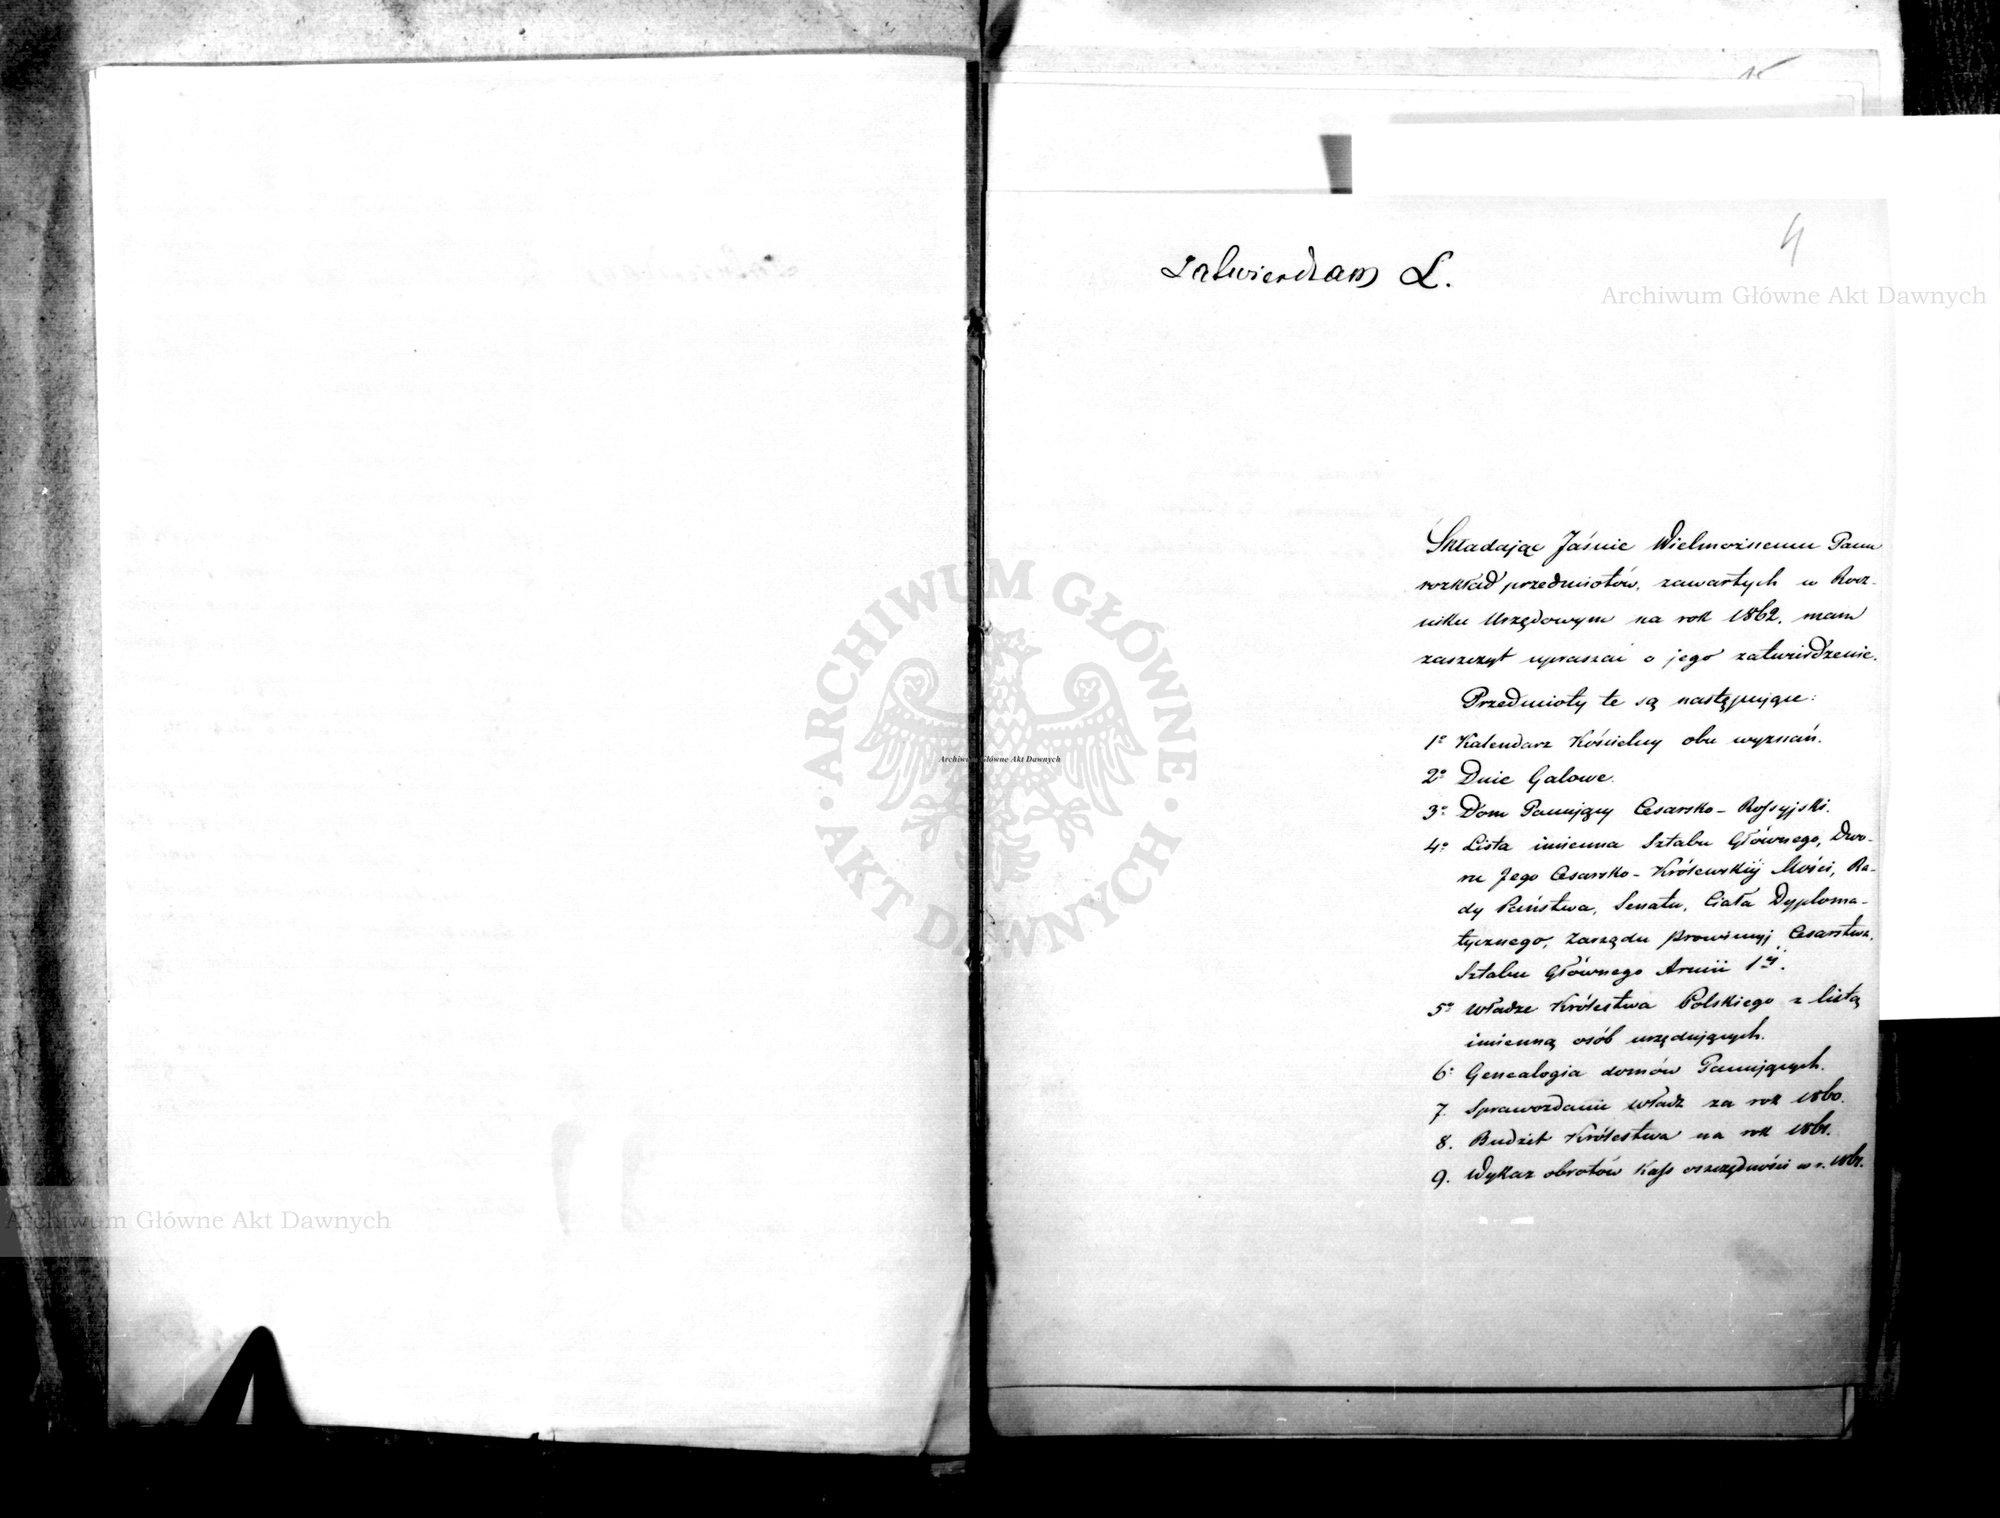 4
Zatwierdzam L.
Składając Jaśnie Wielmożnemu Panu
rozkład przedmiotów, zawartych w Rocz-
niku Urzędowym na rok 1862, mam
zaszczyt upraszać o jego zatwierdzenie.
Przedmioty te są następujące:
1º Kalendarz Kościelny obu wyznań.
2º Dnie Galowe.
3º Dom Panujący Cesarsko-Rossyjski.
4º Lista imienna Sztabu Głównego, Dwo-
ru Jego Cesarsko-Królewskiéj Mości, Ra-
dy Państwa, Senatu, Ciała Dyploma-
tycznego, Zarządu Prowincyj Cesarstwa,
Sztabu Głównego Armii 1éj.
5º Władze Królestwa Polskiego z listą
imienną osób urzędujących.
6º Genealogia domów Panujących.
7. Sprawozdanie Władz za rok 1860.
8. Budżet Królestwa na rok 1861.
9. Wykaz obrotów Kass oszczędności w r. 1861.
Archiwum Główne Akt Dawnych
ARCHIWUM GŁÓWNE
Archiwum Główne Akt Dawnych
AKT DAWNYCH
Archiwum Główne Akt Dawnych